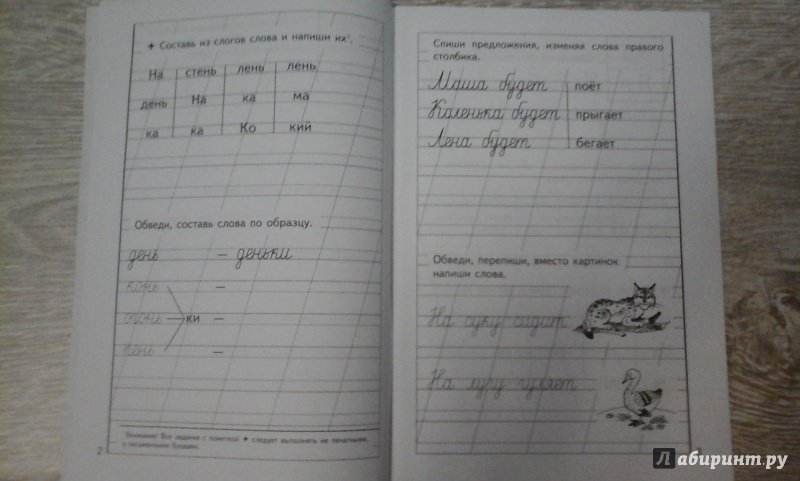 ✦ Составь из слогов слова и напиши их¹.
На стень лень лень
день На ка ма
ка ка Ко кий
Обведи, составь слова по образцу.
день – деньки
конь –
огонь – ки
пень –
¹ Внимание! Все задания с пометкой ✦ следует выполнять не печатными,
а письменными буквами.
2
Спиши предложения, изменяя слова правого
столбика.
Маша будет поёт
Каленька будет прыгает
Лена будет бегает
Обведи, перепиши, вместо картинок
напиши слова.
На суку сидит
На лугу гуляет
Лабиринт.ру